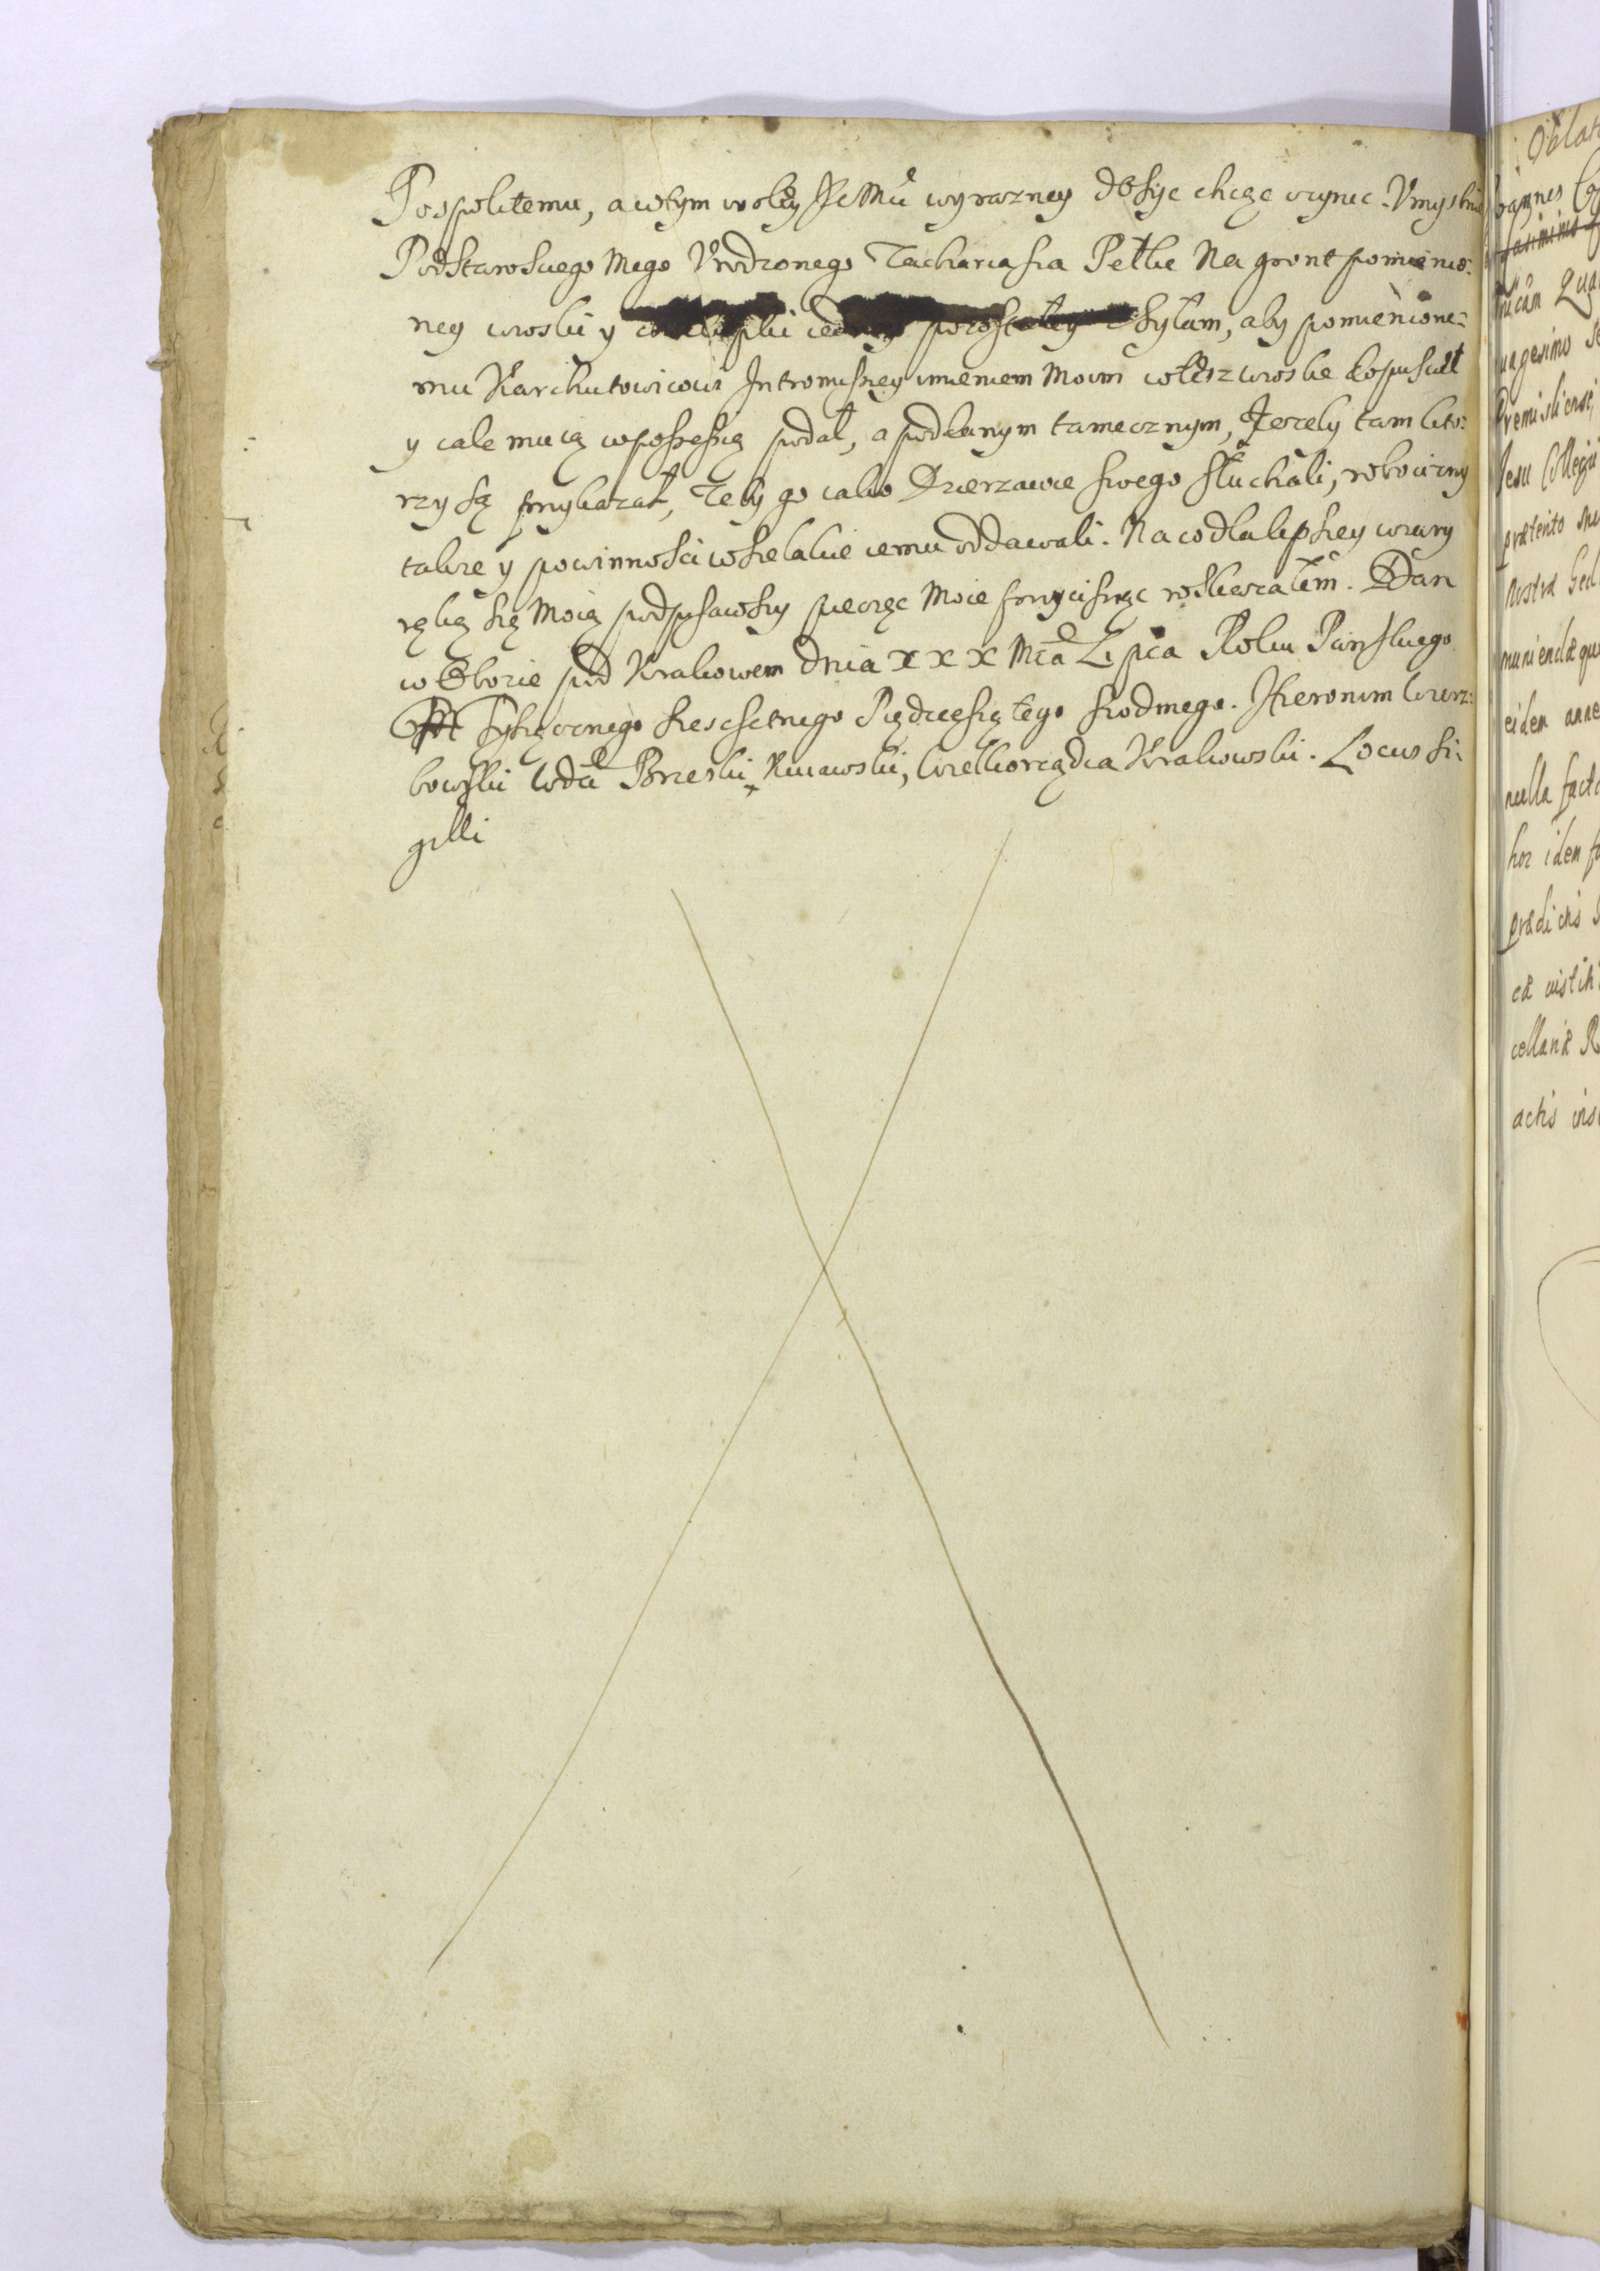 Pospolitemu, a wtym woley JeMci wyrazney dosyc chcąc ucynic. Vmyslnie
Podstarosciego Mego Vrodzonego Zachariasza Pełke Na gront pomienio-
ney wioski y iedney pozostałey zsyłam, aby pomienione-
mu Karchutowicowi Intromissyey imieniem Moim wtesz wioske dopuscił
y cale mu ią wpossessią podał, a poddanym tamecznym, Jezely tam kto-
rzy są przykazał, Zeby go iako Dzierzawce swego słuchali, robocizny
takze y powinnosci wszelakie iemu oddawali. Na co dla lepszey wiary
ręką się Moią podpisawszy pieczęc Moie przycisnąc roskazałem. Dan
w Obozie pod Krakowem dnia xxx Mca Lipca Roku Panskiego
Tysiącnego szescsetnego Pięcdzesiątego siodmego. Hieronim Wierz-
bowski Woda Brzeski Kuiawski, Wielkorządca Krakowski. Locus Si-
gilli
Oblata
Joannes
Qua
uagesimo
Premisliensi
Jesu Collegii
præterito
nostra
muniendæ
eidem anne
nulla facta
hoc idem
prædictis
cellariæ R
actis ins